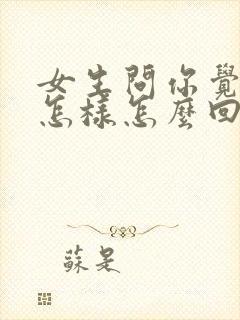 女生問你覺
怎樣怎麼回
蘇是